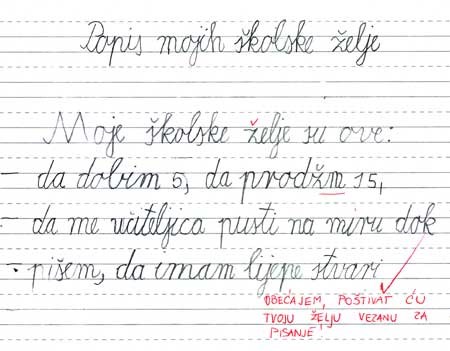 Popis mojih školske želje
Moje školske želje su ove:
- da dobim 5, da prodžem 15,
- da me učiteljica pusti na miru dok
- pišem, da imam lijepe stvari
OBEĆAJEM, POŠTIVAT ĆU
TVOJU ŽELJU VEZANU ZA
PISANJE!